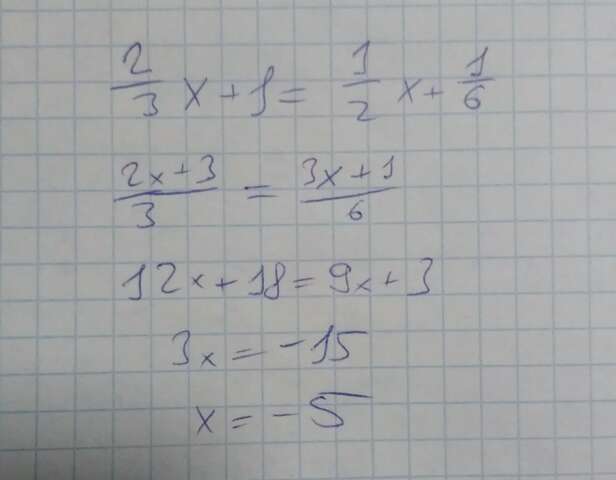 2/3 x + 1 = 1/2 x + 1/6
2x + 3/3 = 3x + 1/6
12x + 18 = 9x + 3
3x = -15
x = -5